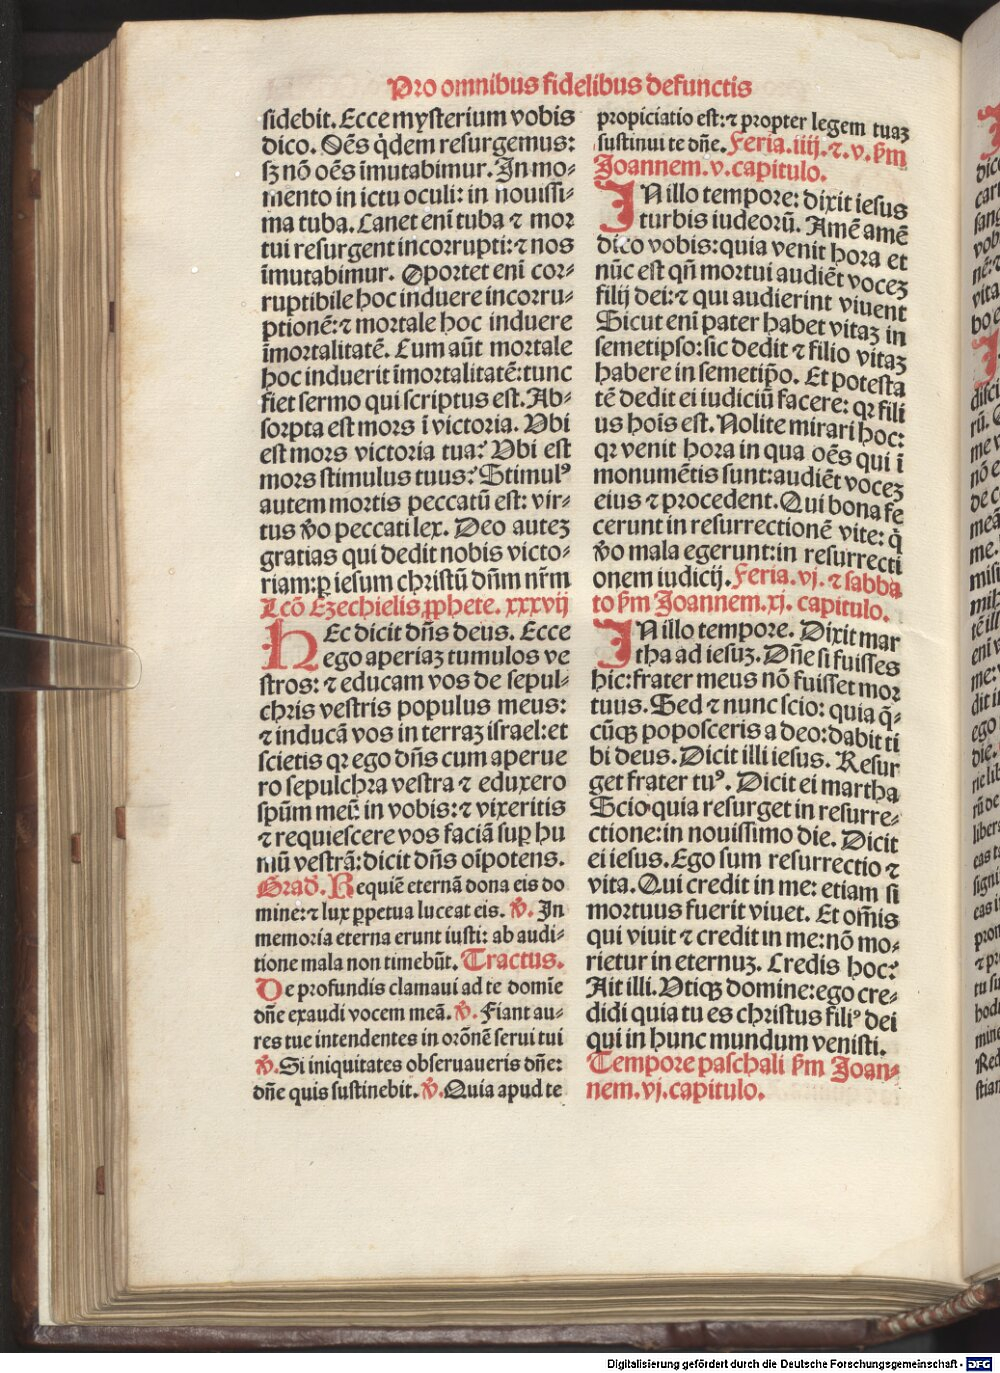 Pro omnibus fidelibus defunctis
sidebit. Ecce mysterium vobis
dico. Oēs q̇dem resurgemus:
sȝ nō oēs īmutabimur. In mo⸗
mento in ictu oculi: in nouissi⸗
ma tuba. Canet enī tuba ⁊ mor
tui resurgent incorrupti: ⁊ nos
īmutabimur. Oportet enī cor⸗
ruptibile hoc induere incorru⸗
ptionē: ⁊ mortale hoc induere
īmortalitatē. Cum aūt mortale
hoc induerit īmortalitatē: tunc
fiet sermo qui scriptus est. Ab⸗
sorpta est mors ī victoria. Vbi
est mors victoria tua? Vbi est
mors stimulus tuus? Stimulꝰ
autem mortis peccatū est: vir⸗
tus v̄o peccati lex. Deo auteȝ
gratias qui dedit nobis victo⸗
riam: ꝑ iesum christū dn̄m nr̄m
Lcō Ezechielis ꝓphete. xxxvij
HEc dicit dn̄s deus. Ecce
ego aperiaȝ tumulos ve
stros: ⁊ educam vos de sepul⸗
chris vestris populus meus:
⁊ inducā vos in terraȝ israel: et
scietis qꝛ ego dn̄s cum aperue
ro sepulchra vestra ⁊ eduxero
spūm meū: in vobis: ⁊ vixeritis
⁊ requiescere vos faciā suꝑ hu
mū vestrā: dicit dn̄s oīpotens.
Grad. Requiē eternā dona eis do
mine: ⁊ lux ꝑpetua luceat eis. ℣. In
memoria eterna erunt iusti: ab audi⸗
tione mala non timebūt. Tractus.
De profundis clamaui ad te domīe
dn̄e exaudi vocem meā. ℣. Fiant au⸗
res tue intendentes in orōnē serui tui
℣. Si iniquitates obseruaueris dn̄e:
dn̄e quis sustinebit. ℣. Quia apud te
propiciatio est: ⁊ propter legem tuaȝ
sustinui te dn̄e. Feria. iiij. ⁊. v. s̄m
Joannem. v. capitulo.
IN illo tempore: dixit iesus
turbis iudeorū. Amē amē
dico vobis: quia venit hora et
nūc est qn̄ mortui audiēt voceȝ
filij dei: ⁊ qui audierint viuent
Sicut enī pater habet vitaȝ in
semetipso: sic dedit ⁊ filio vitaȝ
habere in semetip̄o. Et potesta
tē dedit ei iudiciū facere: qꝛ fili
us hoīs est. Nolite mirari hoc:
qꝛ venit hora in qua oēs qui ī
monumētis sunt: audiēt voceȝ
eius ⁊ procedent. Qui bona fe
cerunt in resurrectionē vite: q̇
v̄o mala egerunt: in resurrecti
onem iudicij. Feria. vj. ⁊ sabba
to s̄m Joannem. xj. capitulo.
IN illo tempore. Dixit mar
tha ad iesuȝ. Dn̄e si fuisses
hic: frater meus nō fuisset mor
tuus. Sed ⁊ nunc scio: quia q̄⸗
cūqȝ poposceris a deo: dabit ti
bi deus. Dicit illi iesus. Resur
get frater tuꝰ. Dicit ei martha
Scio quia resurget in resurre⸗
ctione: in nouissimo die. Dicit
ei iesus. Ego sum resurrectio ⁊
vita. Qui credit in me: etiam si
mortuus fuerit viuet. Et om̄is
qui viuit ⁊ credit in me: nō mo⸗
rietur in eternuȝ. Credis hoc?
Ait illi. Vtiqȝ domine: ego cre⸗
didi quia tu es christus filiꝰ dei
qui in hunc mundum venisti.
Tempore paschali s̄m Joan⸗
nem. vj. capitulo.
Digitalisierung gefördert durch die Deutsche Forschungsgemeinschaft - DFG